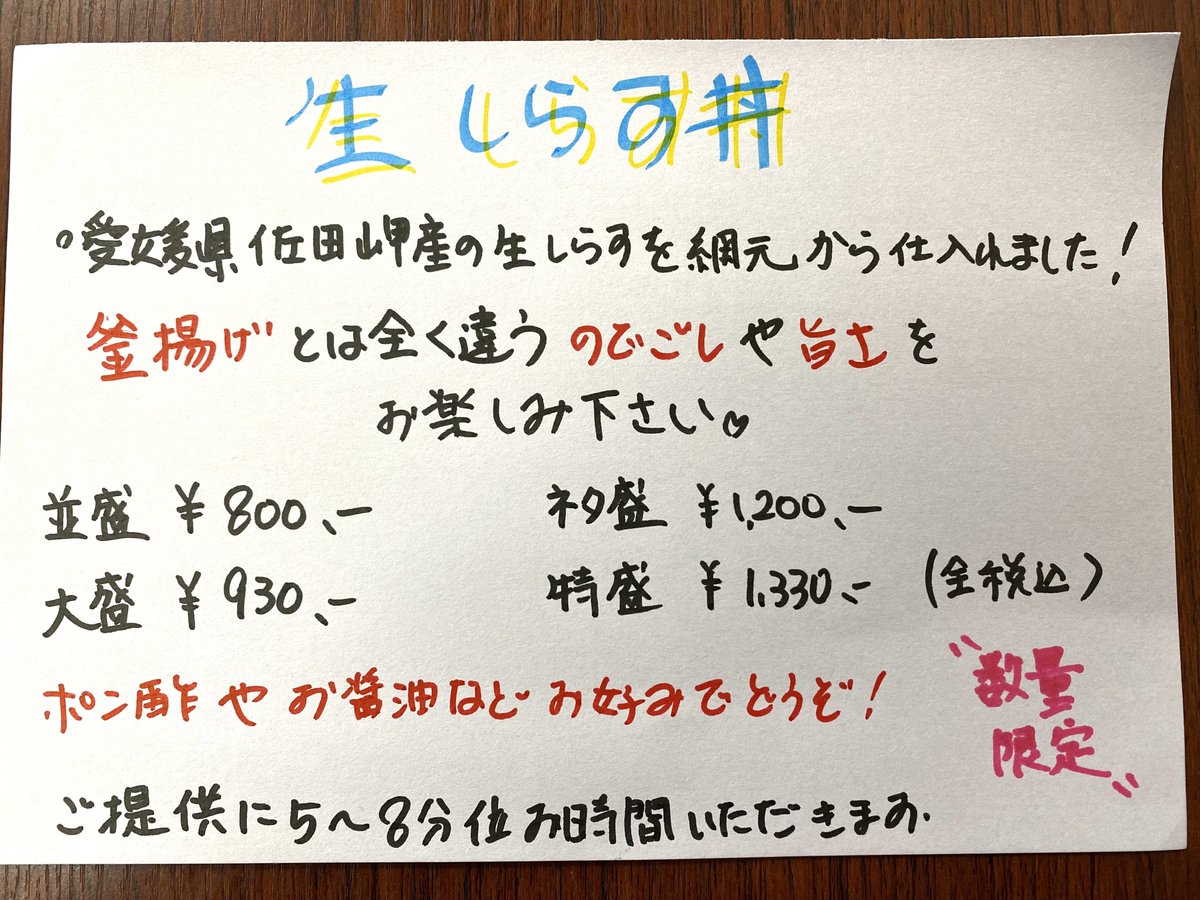 生しらす丼
。愛媛県佐田岬産の生しらすを網元から仕入れました!
釜揚げとは全く違うのどごしや旨さを
お楽しみ下さい♡
並盛 ¥800、ー
ネタ盛 ¥1,200、ー
大盛 ¥930、ー
特盛 ¥1,330、ー (全税込)
ポン酢やお醤油などお好みでどうぞ!
〝数量
限定〟
ご提供に5〜8分位お時間いただきます.